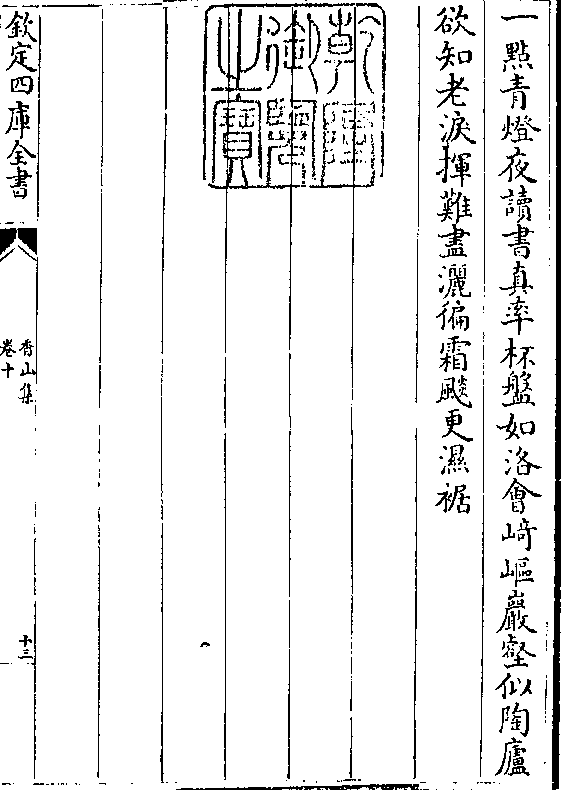 一點青燈夜讀書真率杯盤如洛會﨑嶇巖壑似陶廬
欲知老淚揮難盡灑徧霜颷更濕裾
乾隆御覽之寶
欽定四庫全書
香山集
卷十
十三